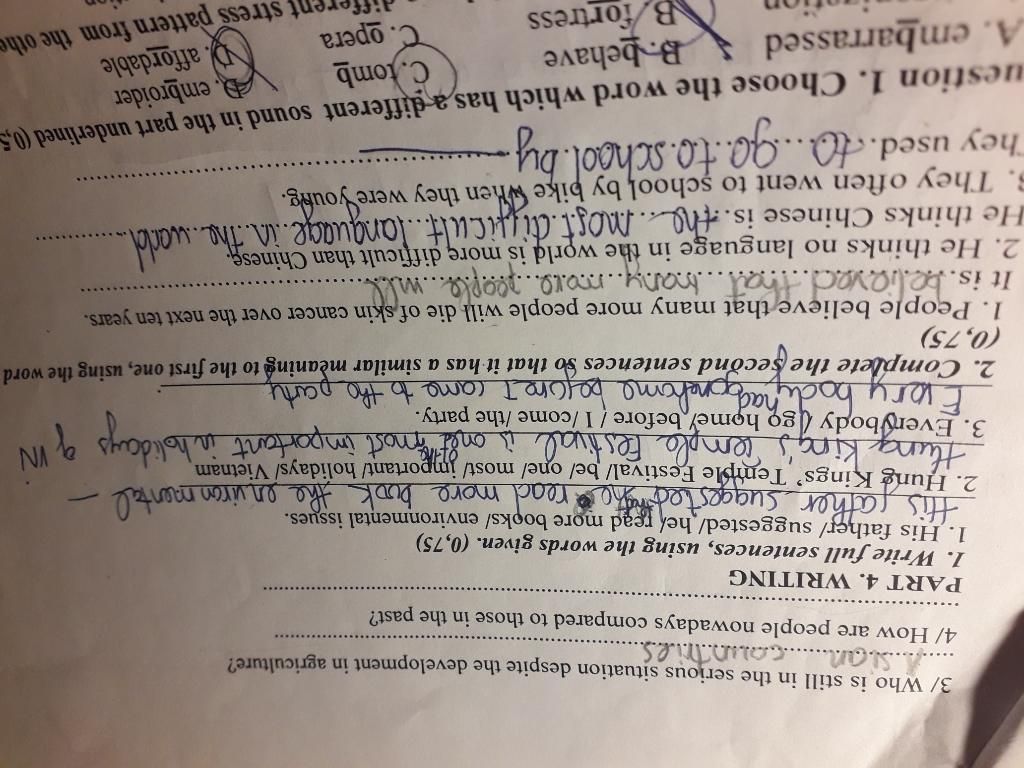 3/ Who is still in the serious situation despite the development in agriculture?
Asian countries
4/ How are people nowadays compared to those in the past?
PART 4. WRITING
1. Write full sentences, using the words given. (0,75)
1. His father/ suggested/ he/ read more books/ environmental issues.
His father suggested he read more book the environmental
2. Hung Kings' Temple Festival/ be/ one/ most/ important/ holidays/ Vietnam
Hung King's Temple Festival is one of the most important in holidays of VN
3. Everybody / go home/ before / I /come /the party.
Every body had gone home before I came to the party
2. Complete the second sentences so that it has a similar meaning to the first one, using the word
(0,75)
1. People believe that many more people will die of skin cancer over the next ten years.
It is believed that many more people will
2. He thinks no language in the world is more difficult than Chinese.
He thinks Chinese is the most difficult language in the world
3. They often went to school by bike when they were young.
They used to go to school by
uestion 1. Choose the word which has a different sound in the part underlined (0,5
A. embarrassed B. behave C. tomb D. embroider
B. fortress C. opera D. affordable
different stress pattern from the othe